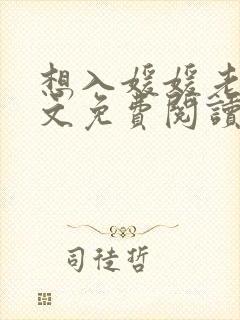 想入媛媛老
文免費閱讀
司徒哲